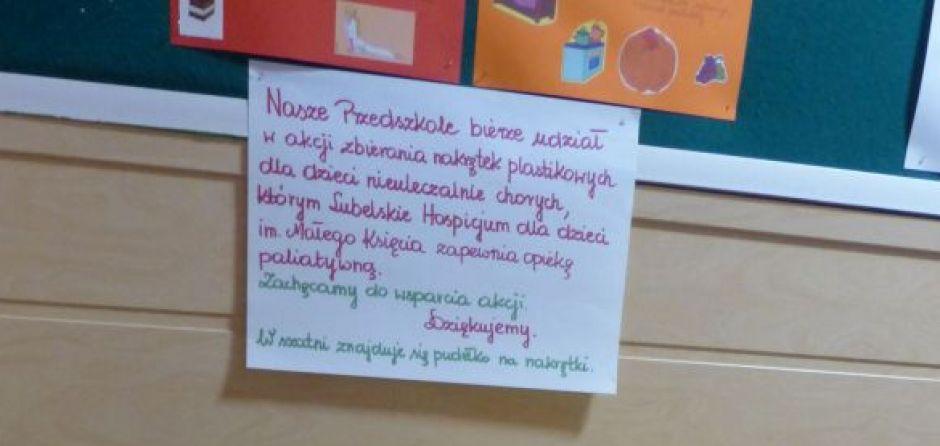 Nasze Przedszkole bierze udział
w akcji zbierania nakrętek plastikowych
dla dzieci nieuleczalnie chorych,
którym Lubelskie Hospicjum dla dzieci
im. Małego Księcia zapewnia opiekę
paliatywną.
Zachęcamy do wsparcia akcji.
Dziękujemy.
W szatni znajduje się pudełko na nakrętki.